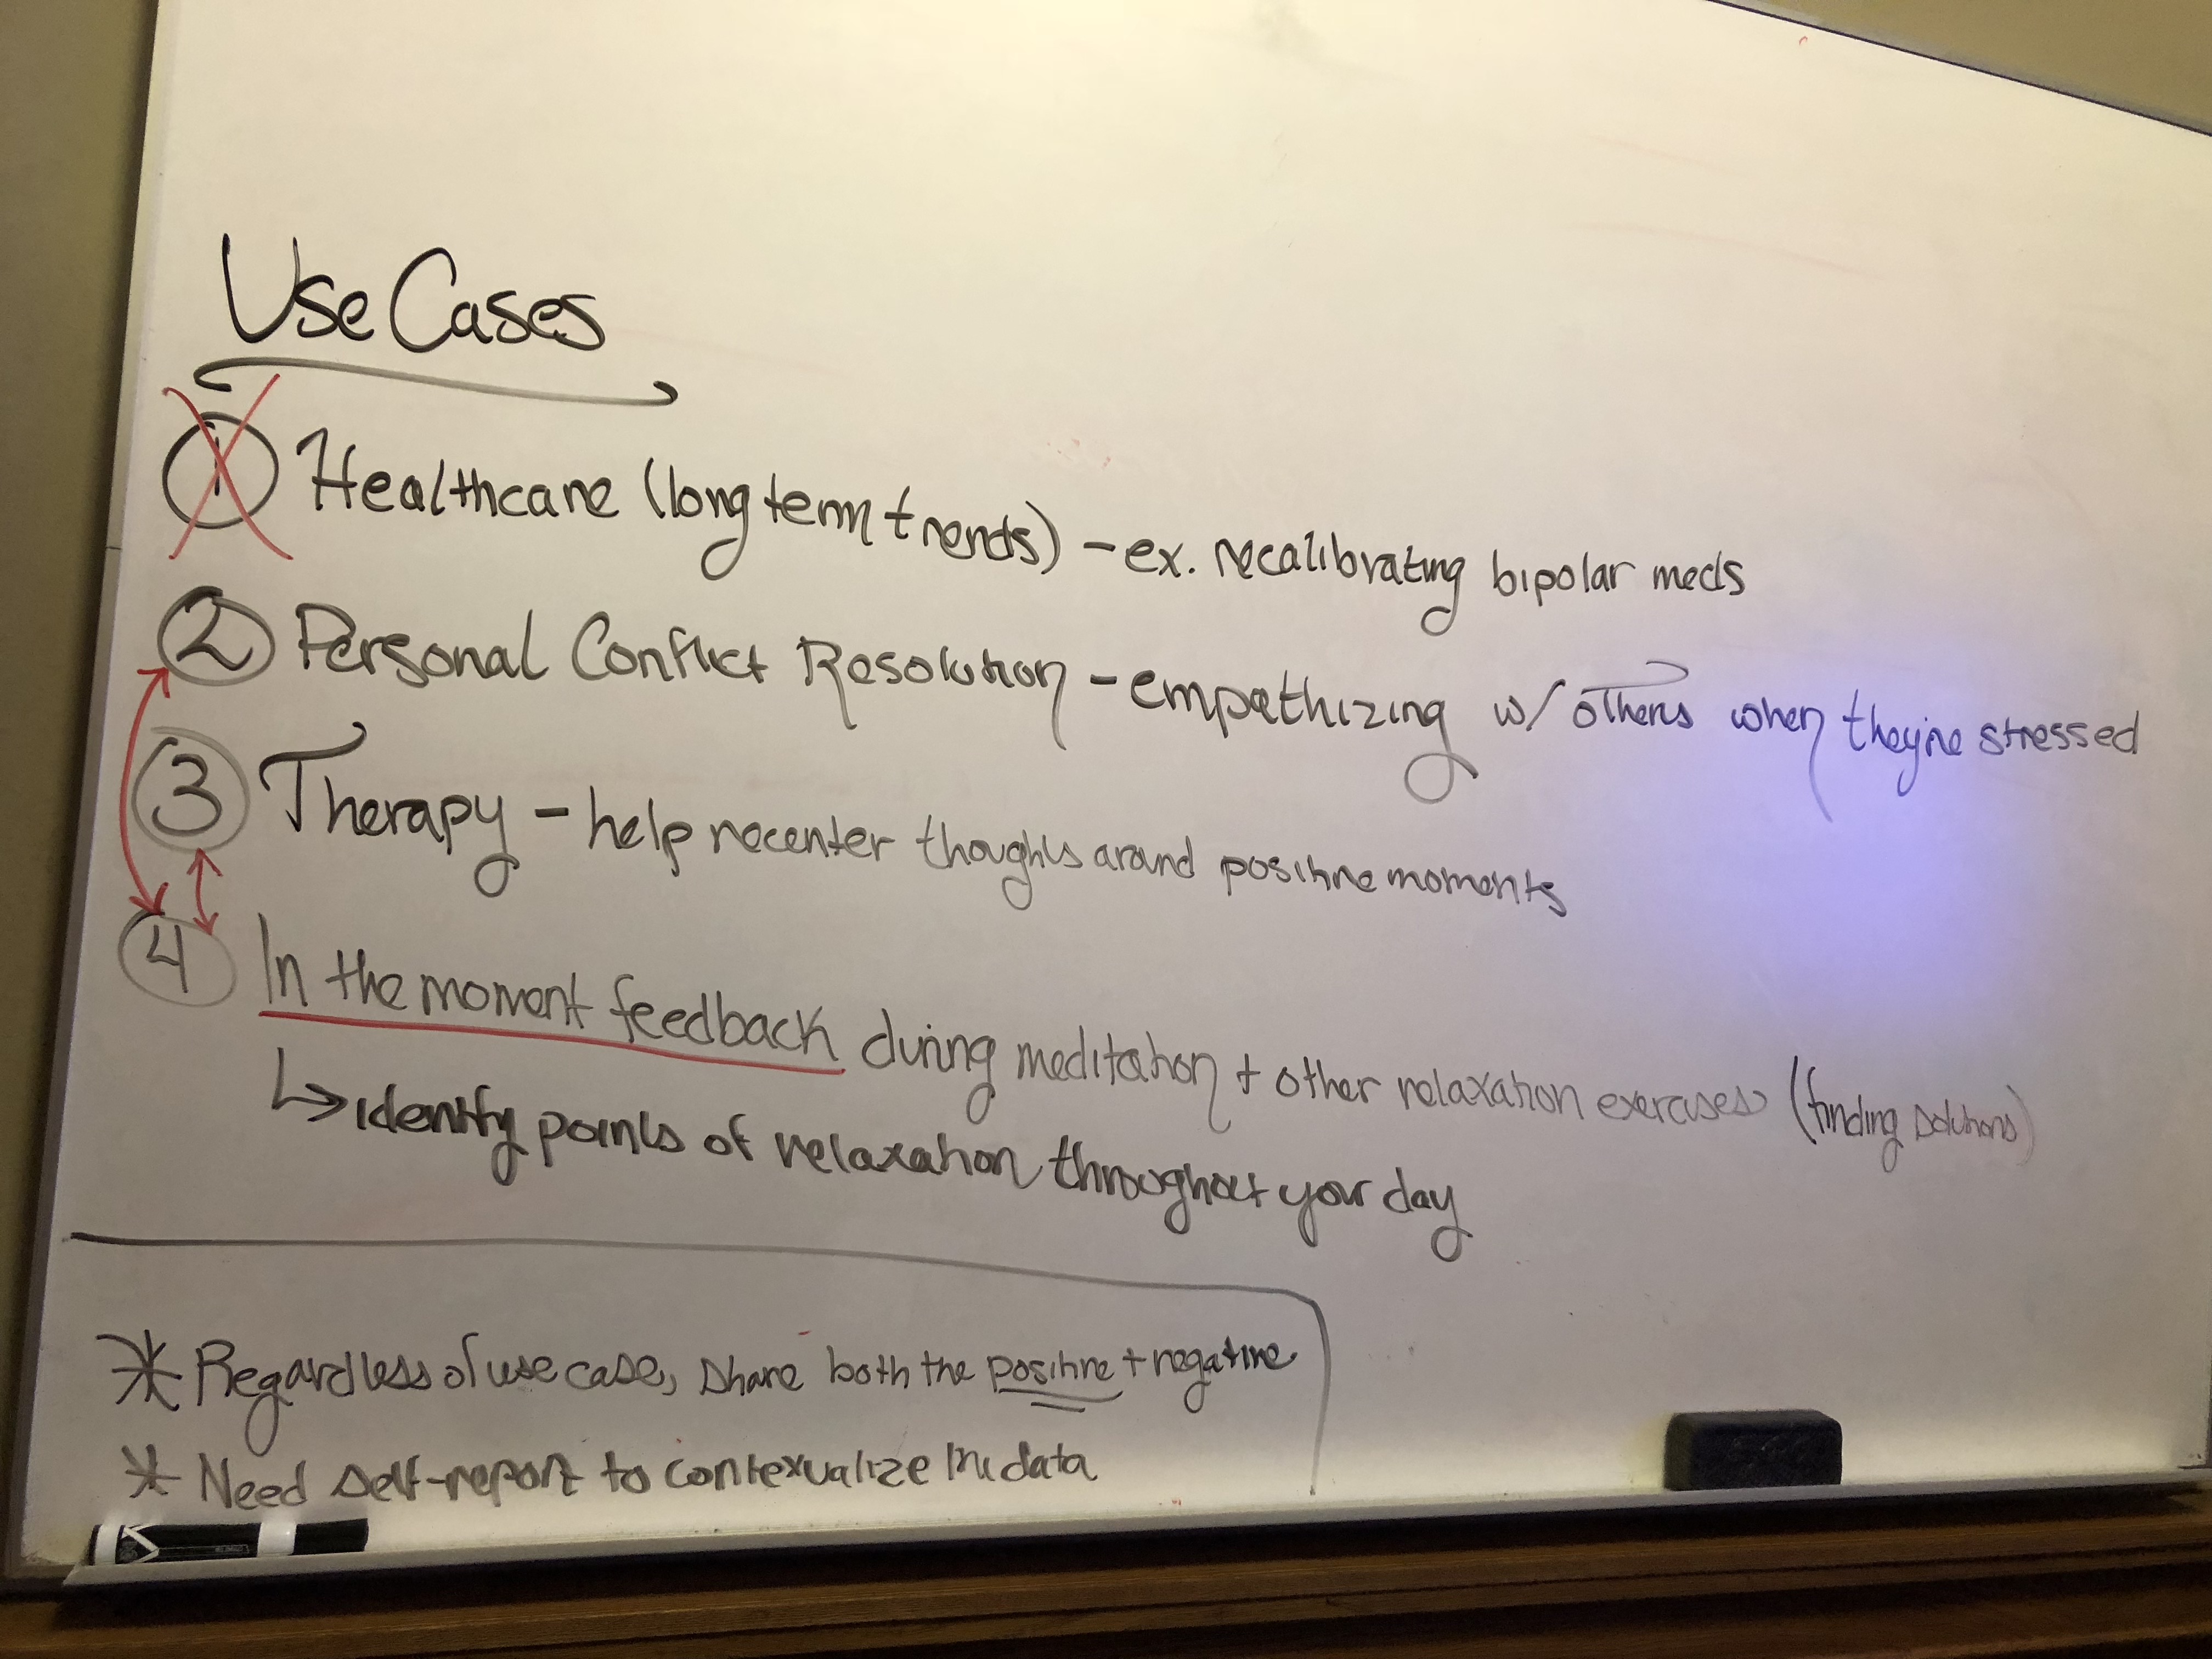 Use Cases
1 Healthcare (long term trends) - ex. recalibrating bipolar meds
2 Personal Conflict Resolution - empathizing w/ others when they're stressed
3 Therapy - help recenter thoughts around positive moments
4 In the moment feedback during meditation + other relaxation exercises (finding solutions)
↳ identify points of relaxation throughout your day
* Regardless of use case, share both the positive + negative
* Need self-report to contexualize the data